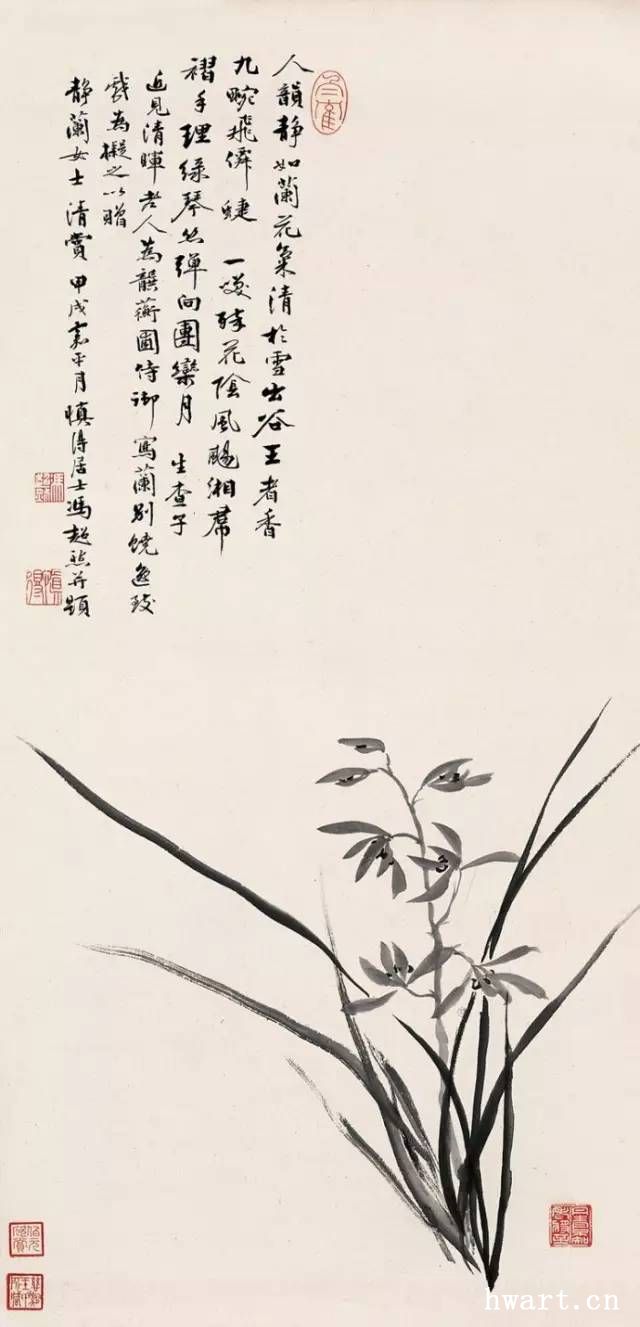 人韻静如蘭花氣清於雪出谷王者香
九畹飛僊蜨 一燄殘花陰風颺湘帬
褶手理緑琴絲彈向團欒月 生查子
近見清暉老人爲韻薌圖侍御寫蘭别饒逸致
戲爲擬之以贈
静蘭女士清賞 甲戌嘉平月慎得居士馮超然并題
hwart.cn